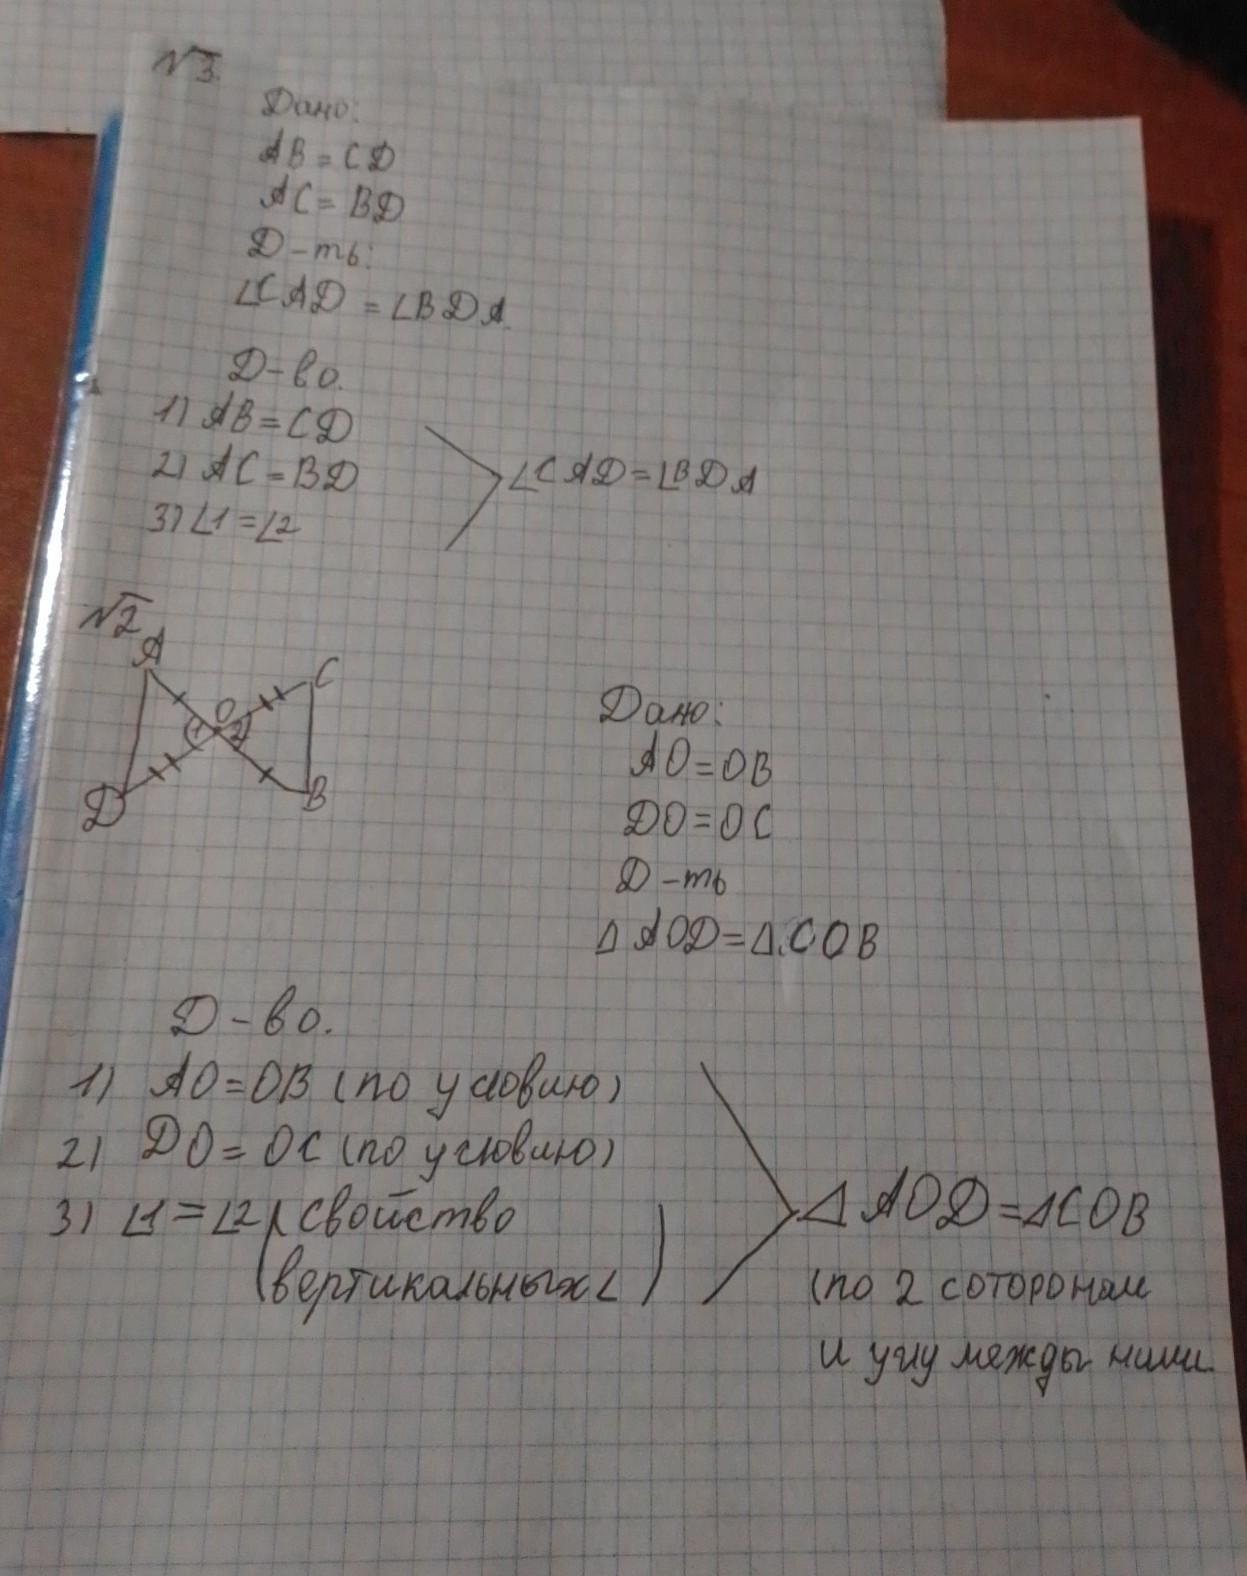 №3.
Дано:
AB = CD
AC = BD
Д-ть:
∠CAD = ∠BDA
Д-во.
1) AB = CD
2) AC = BD
3) ∠1 = ∠2
∠CAD = ∠BDA
№2
A
C
O
1
2
D
B
Дано:
AO = OB
DO = OC
Д-ть
Δ AOD = Δ COB
Д-во.
1) AO = OB (по условию)
2) DO = OC (по условию)
3) ∠1 = ∠2 (свойство
вертикальных ∠)
Δ AOD = Δ COB
(по 2 соторонам
и углу межды ними